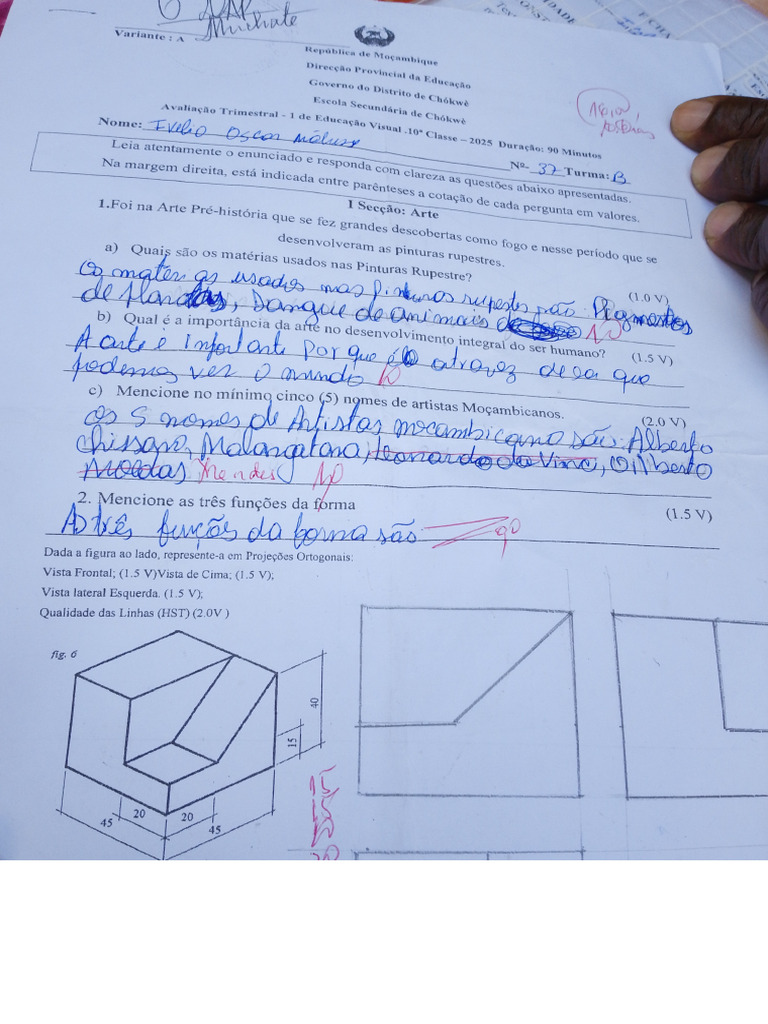 Variante : A
Muchate
República de Moçambique
Direcção Provincial da Educação
Governo do Distrito de Chókwè
Escola Secundária de Chókwè
Avaliação Trimestral - 1 de Educação Visual .10ª Classe – 2025 Duração: 90 Minutos
Nome: Oscar Nº- 37 Turma: B
Leia atentamente o enunciado e responda com clareza as questões abaixo apresentadas.
Na margem direita, está indicada entre parênteses a cotação de cada pergunta em valores.
I Secção: Arte
1.Foi na Arte Pré-história que se fez grandes descobertas como fogo e nesse período que se
desenvolveram as pinturas rupestres.
a) Quais são os matérias usados nas Pinturas Rupestre? (1.0 V)
Os usados nas são: Pigmentos
de , Sangue de animais
b) Qual é a importância da arte no desenvolvimento integral do ser humano? (1.5 V)
A arte é importante por que é atravez desa que
podemos ver o mundo
c) Mencione no mínimo cinco (5) nomes de artistas Moçambicanos. (2.0 V)
os 5 nomes de Artistas mocambicano são: Alberto
chissano, Malangatana, Leonardo da Vinci, Gilberto
Mendes
2. Mencione as três funções da forma (1.5 V)
As três funções da forma são
Dada a figura ao lado, represente-a em Projeções Ortogonais:
Vista Frontal; (1.5 V)Vista de Cima; (1.5 V);
Vista lateral Esquerda. (1.5 V);
Qualidade das Linhas (HST) (2.0V )
fig. 6
40
15
20
20
45
45